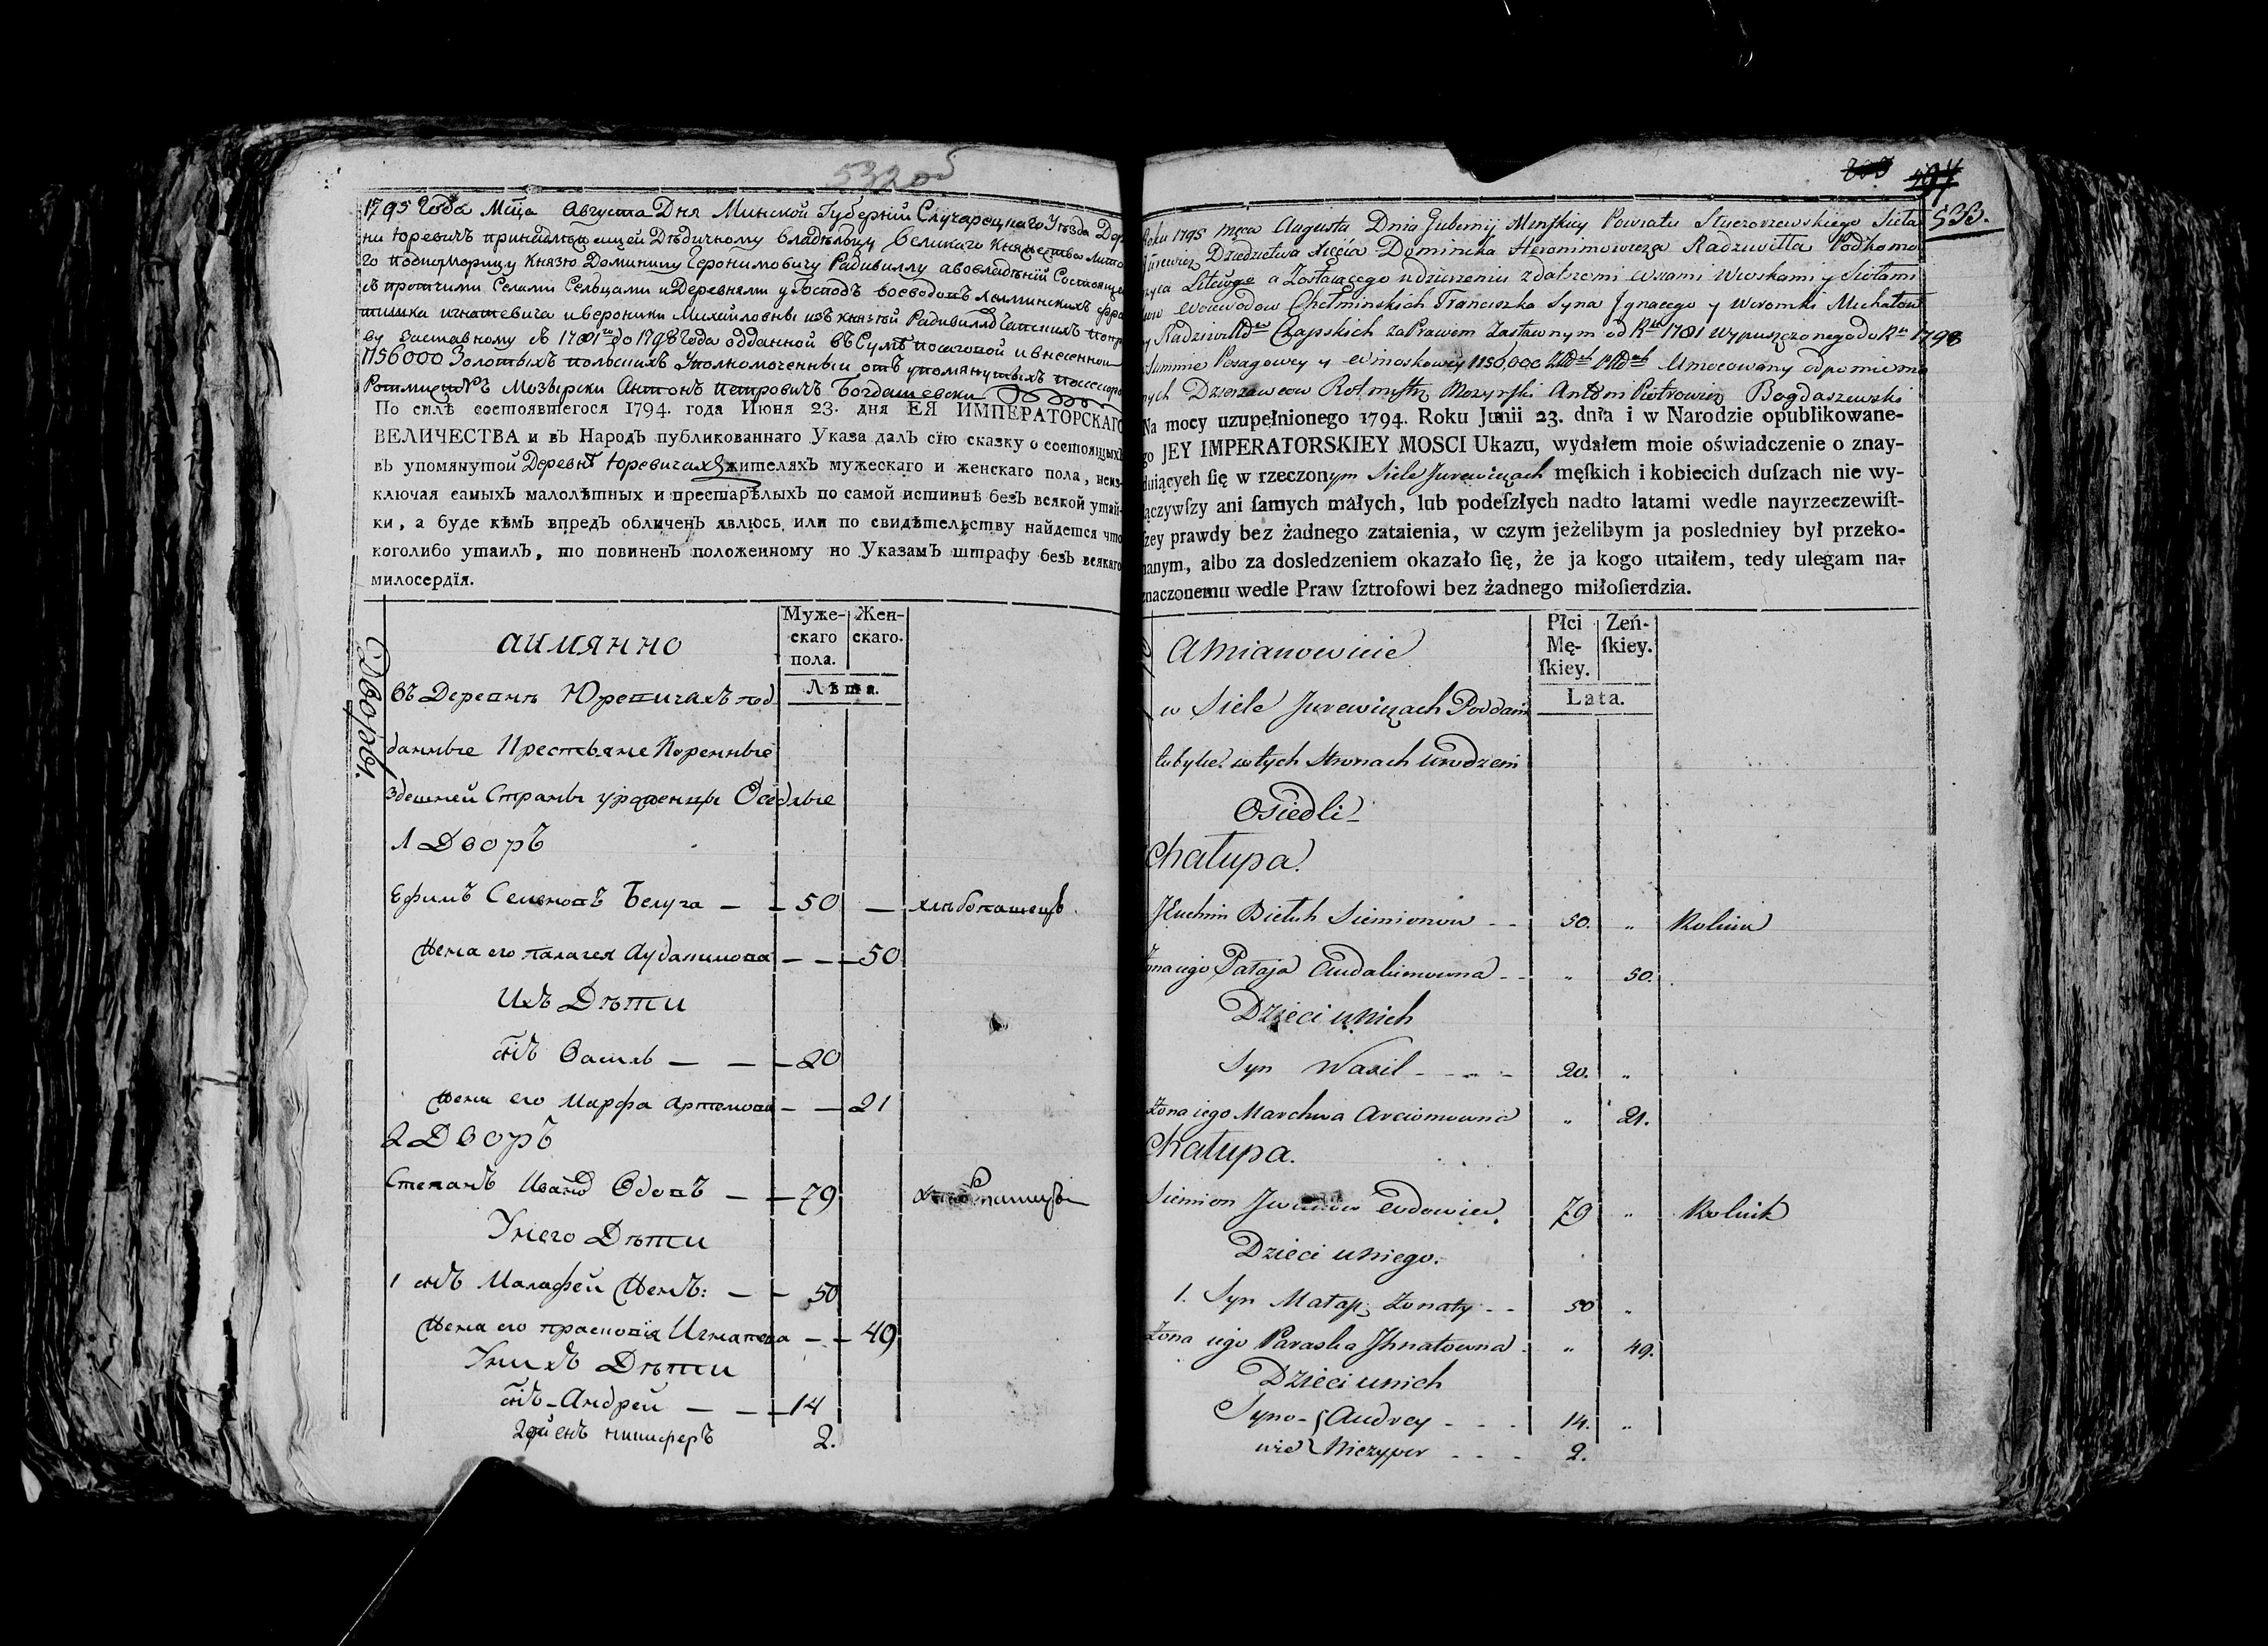 532 об
1795 Года Мца Августа Дня Минской Губернїи Случарецкаго Уѣзда Дер
ни Юревичъ принадлежащей Дѣдичному владѣльцу Великаго Княжества Лито
го подкоморицу Князю Доминику Иеронимовичу Радивиллу авовладѣнїй Состояще
съ протчими Селами Сельцами и Деревнями у Господъ воеводовъ хелминскихъ фра
тишка игнатевича и вероники Михайловны изъ князей Радивилловъ Чапскихъ попр
ву заставному съ 1781го до 1798 Года одданной въ Сумѣ посаговой и внесенной
1156000 Золотыхъ польскихъ Уполномоченный отъ упомянутыхъ посесоро
Ротмистръ Мозырски Антонъ петровичъ Богдашевски
По силѣ состоявшегося 1794. года Июня 23. дня ЕЯ ИМПЕРАТОРСКАГО
ВЕЛИЧЕСТВА и въ Народъ публикованнаго Указа далъ сїю сказку о состоящыхъ
въ упомянутой Деревнѣ Юревичахъ жителяхъ мужескаго и женскаго пола, неиз-
ключая самыхъ малолѣтныхъ и престарѣлыхъ по самой истиннѣ безъ всякой утай-
ки, а буде кѣмъ впредъ обличенъ явлюсь или по свидѣтельству найдется что
коголибо утаилъ, то повиненъ положенному по Указамъ штрафу безъ всякаго
милосердїя.
Дворы.
аимянно
Муже-
скаго
пола.
Жен-
скаго.
Лѣта.
въ Деревнѣ Юревичахъ под
данные Крестьяне Коренные
здешней Страны уроженцы Оседлые
1 Дворъ
Ефимъ Семеновъ Белуга — — 50 — хлѣбопашецъ
Жена его палагея Аудакимова — — — 50
Ихъ Дѣти
снъ Василь — — — 20
Жена его Марфа Артемова — — 21
2 Дворъ
Степанъ Иванов Вдовъ — — 79
У него Дѣти
1 снъ Малафей Женъ: — — 50
Жена его прасковїя Игнатева — — 49
У нихъ Дѣти
снъ - Андрей — — — 14
2рй снъ никиферъ 2.
532.
Roku 1795 męca Augusta Dnia Gubernij Minskiey Powiatu Słuczorzewskiego Sieła
Jurewicz Dziedzictwa Xięcia Dominika Heronimowicza Radziwiłła Podkomo
rzyca Litewgo a Zostaiącego w dzierżeniu z dalszemi wsiami Wioskami y Siołami
ww Woiewodow Chełminskich Franciszka Syna Jgnacego y Weroniki Michałow
y Radziwiłłow Czapskich za Prawem Zastawnym od Rku 1781 wypuszczonego do Rku 1798
Summie Posagowey y wnioskowey 1150,000 Złłch Pllch Umocowany od pomienio
nych Dzierzawcow Rotmistrz Mozyrski Antoni Piotrowicz Bogdaszewski
Na mocy uzupełnionego 1794. Roku Junii 23. dnia i w Narodzie opublikowane-
go JEY IMPERATORSKIEY MOSCI Ukazu, wydałem moie oświadczenie o znay-
duiących ſię w rzeczonym Siele Jurewiczach męſkich i kobiecich duſzach nie wy-
łączywſzy ani ſamych małych, lub podeſzłych nadto latami wedle nayrzeczewiſt-
ſzey prawdy bez żadnego zataienia, w czym jeżelibym ja posledniey był przeko-
nanym, albo za dosledzeniem okazało ſię, że ja kogo utaiłem, tedy ulegam na-
znaczonemu wedle Praw ſztrofowi bez żadnego miłoſierdzia.
Amianowicie
Płci
Mę-
ſkiey.
Zeń-
ſkiey.
Lata.
w Siele Jurewiczach Poddani
tubylcе w tych Stronach Urodzeni
Osiedli
Chałupa
Jeuchim Bieluh Siemionow - - 50. „ Rolnik
Żona iego Pałaja Audakimowna - - „ 50.
Dzieci u Nich
Syn Wasil - - - - 20. „
Żona iego Marchwa Arciomowna „ 21.
Chałupa.
Siemion Jwanow Wdowiec 79 „ Rolnik
Dzieci u Niego.
1. Syn Małap. Zonaty - - 50 „
Żona iego Paraska Jhnatowna „ 49.
Dzieci u nich
Syno- { Andrey - - - 14. „
wie { Niczyper - - - 2.